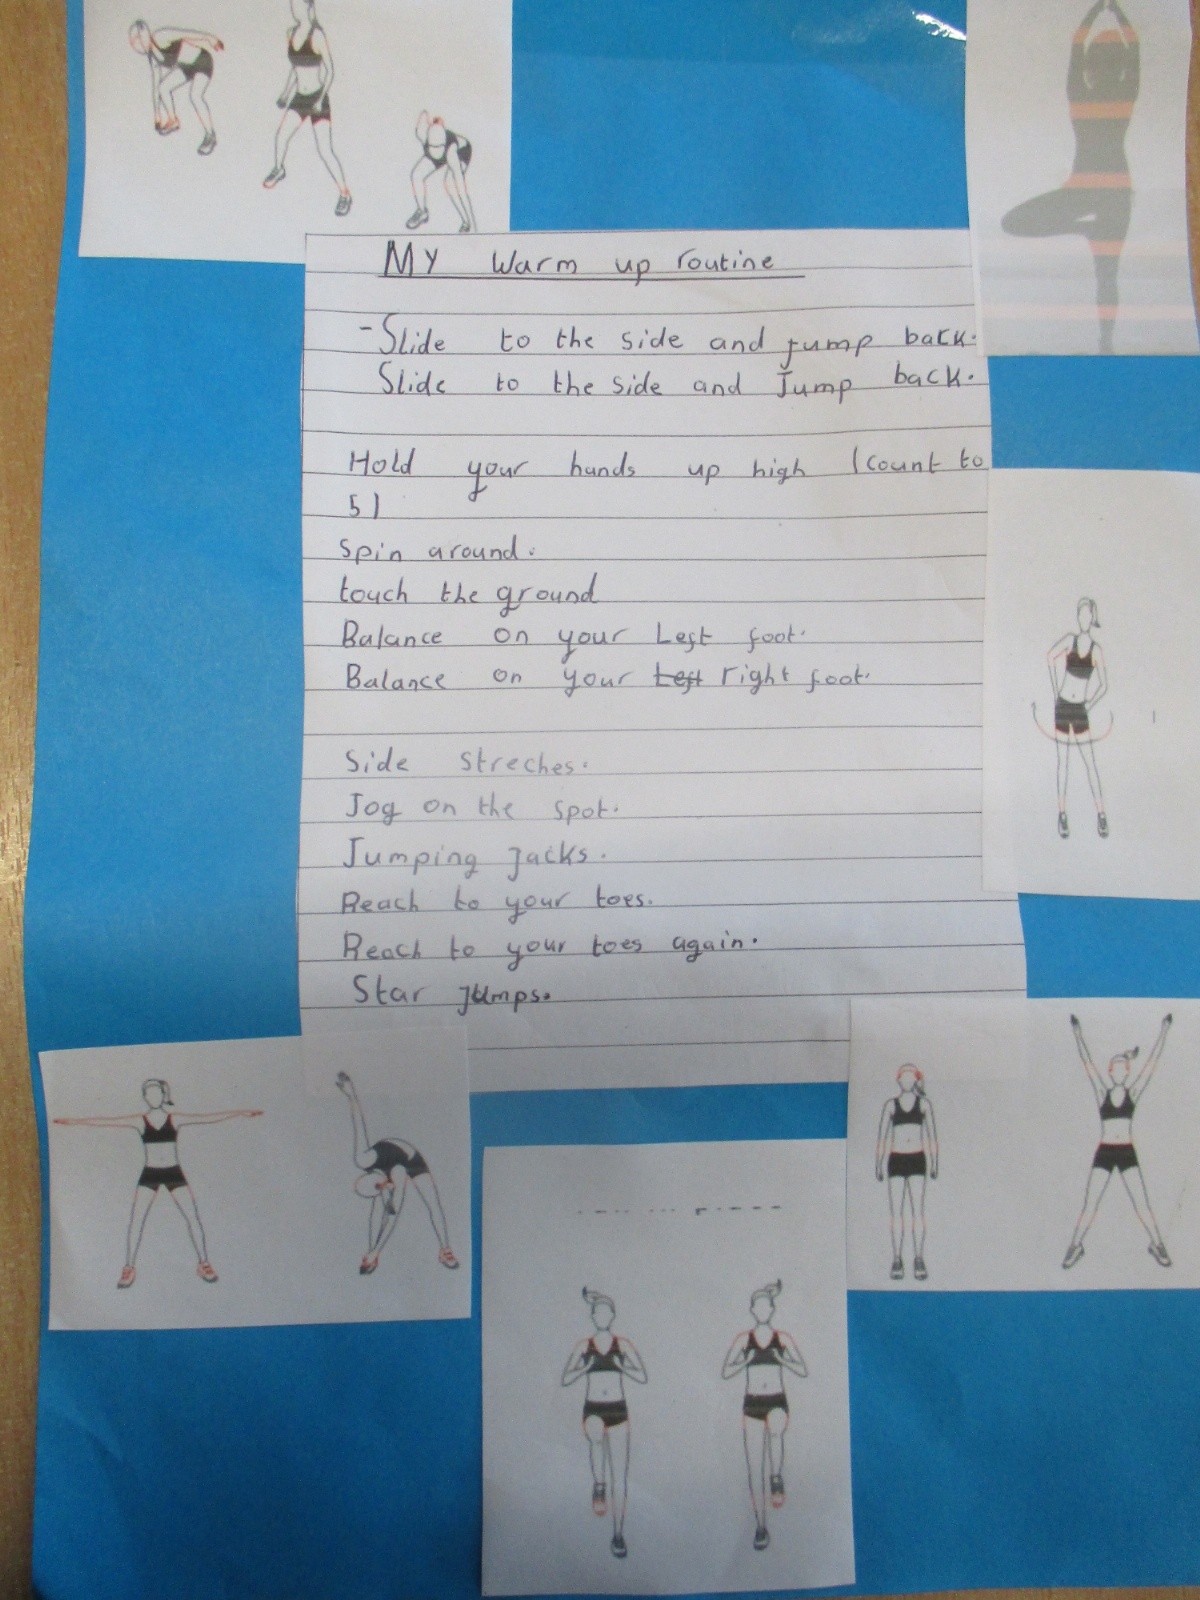 My Warm up routine
-Slide to the side and jump back.
Slide to the side and Jump back.
Hold your hands up high (count to
5)
Spin around.
touch the ground
Balance on your Left foot.
Balance on your Left right foot.
Side streches.
Jog on the spot.
Jumping Jacks.
Reach to your toes.
Reach to your toes again.
Star Jumps.